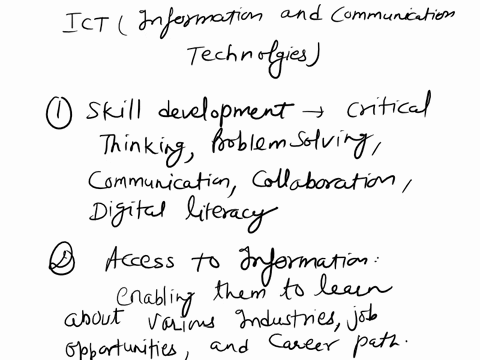 ICT ( Information and Communication
Technolgies)
① Skill development → Critical
Thinking, Problem Solving,
Communication, Collaboration,
Digital literacy
② Access to Information:
enabling them to learn
about various Industries, job
opportunities, and Career path.